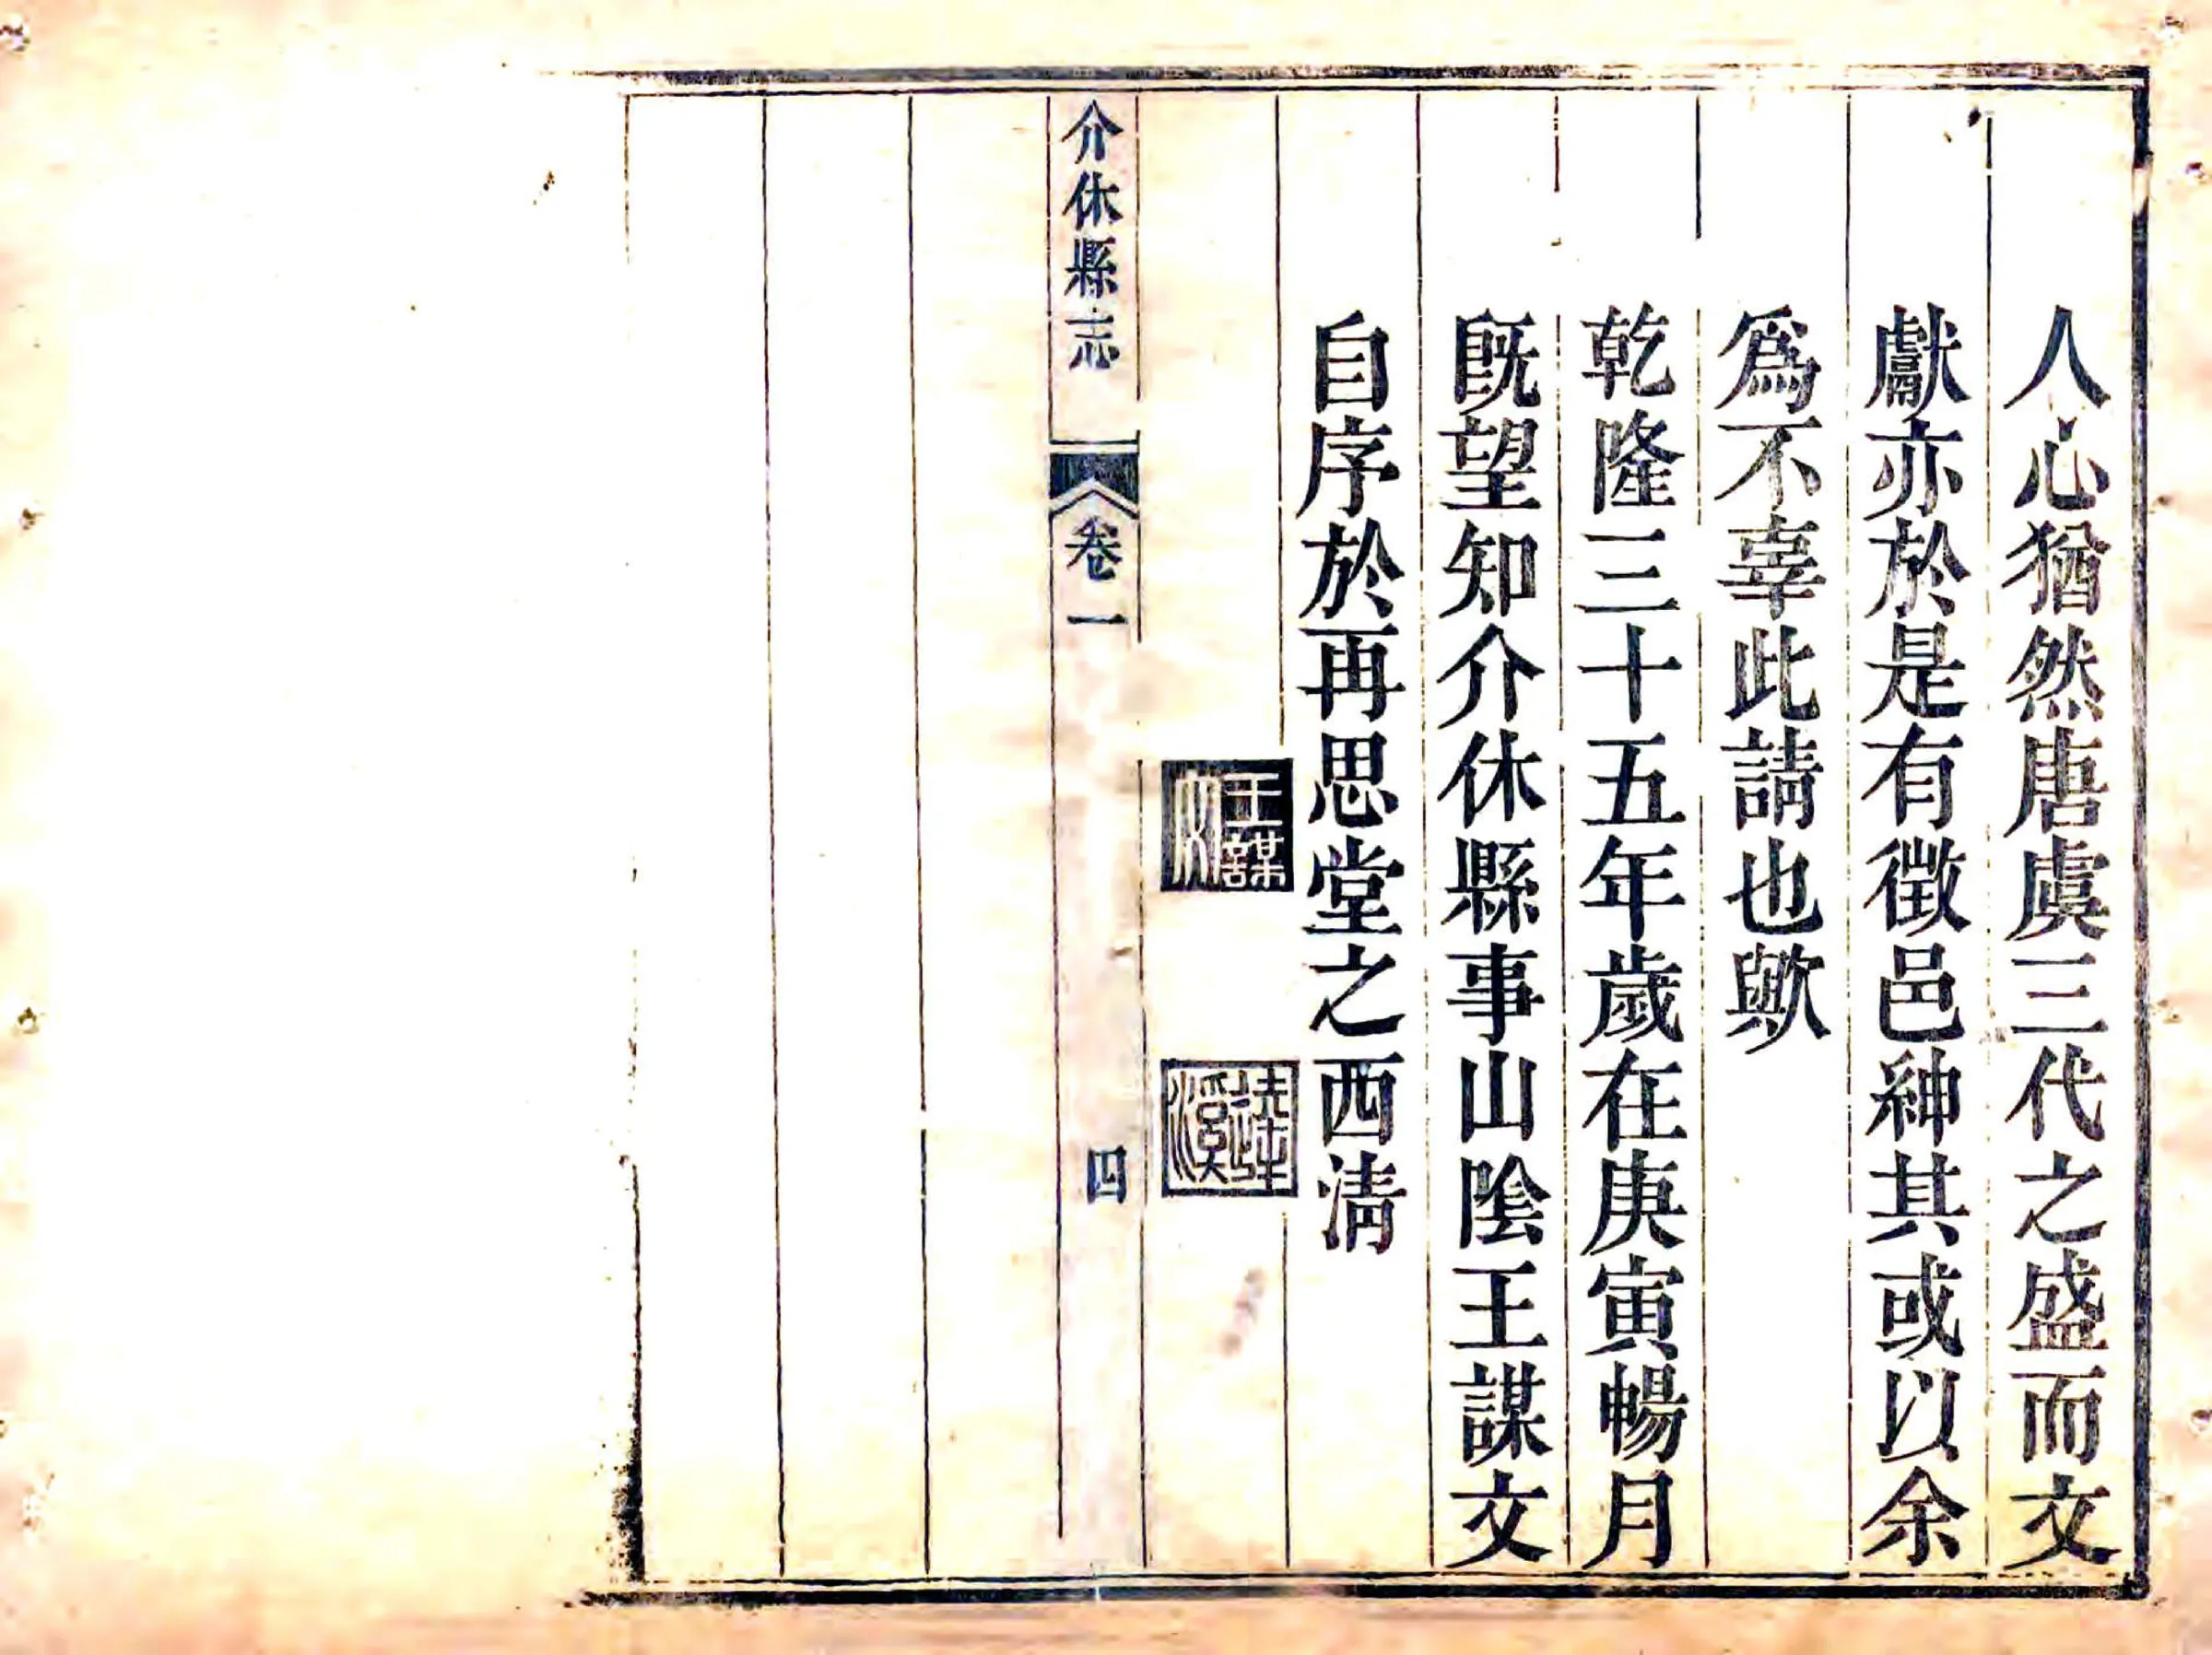 人心猶然唐虞三代之盛而文
獻亦於是有徵邑紳其或以余
爲不辜此請也歟
乾隆三十五年歲在庚寅暢月
既望知介休縣事山陰王謀文
自序於再思堂之西淸
王謀文
溪
介休縣志 卷一 四